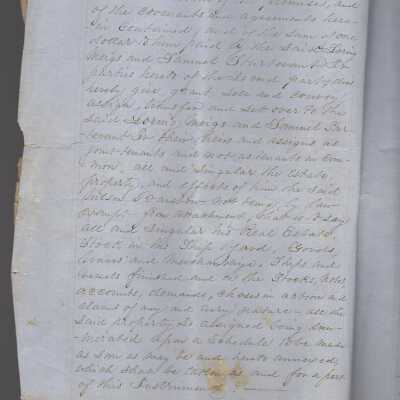 of the promises, and
of the covenants and agreements here-
in contained, and of the sum of one
dollar to him paid by the said Loring
Meigs and Samuel Sturtevant
parties hereto of the second part, does
hereby give, grant, sell and convey,
assign, transfer and set over to the
said Loring Meigs and Samuel Stur-
tevant Jr them, heirs and assigns as
joint tenants and not as tenants in com-
mon, all and singular the estate,
property, and effects of him the said
Wilson Barstow not being by law
exempt from attachment, that is to say
all and singular his Real Estate,
Stock in his Ship Yard, Goods,
Wares and Merchandize, Ships and
vessels finished and on the Stocks, notes,
accounts, demands, choses in action and
claims of any and every nature - all the
said property so assigned being enu-
merated upon a Schedule to be made
as soon as may be and hereto annexed,
which shall be taken as and for a part
of this Instrument.